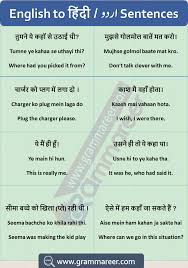 English to हिंदी / اردو Sentences
तुमने ये कहाँ से उठाई थी?
Tumne ye kahaa se uthayi thi?
Where had you picked it from?
मुझसे गोलमोल बातें मत करो।
Mujhse golmol baate mat karo.
Don't talk clever with me.
चार्जर को प्लग में लगा दो।
Charger ko plug mein laga do
Plug the charger please.
काश मैं वहाँ होता।
Kaash mai vahaan hota.
I wish, I were there.
ये मैं ही हूँ।
Ye main hi hun.
This is really me.
उसने ही तो ये कहा था।
Usne hi to ye kaha tha.
It was he, who had said so.
सीमा बच्चे को खिला (प्ले) रही थी।
Seema bachche ko khila rahi thi.
Seema was making the kid play
ऐसे में हम कहाँ जा सकते हैं ?
Aise mein ham kahan ja sakta hai
Where can we go in this situation?
www.grammareer.com